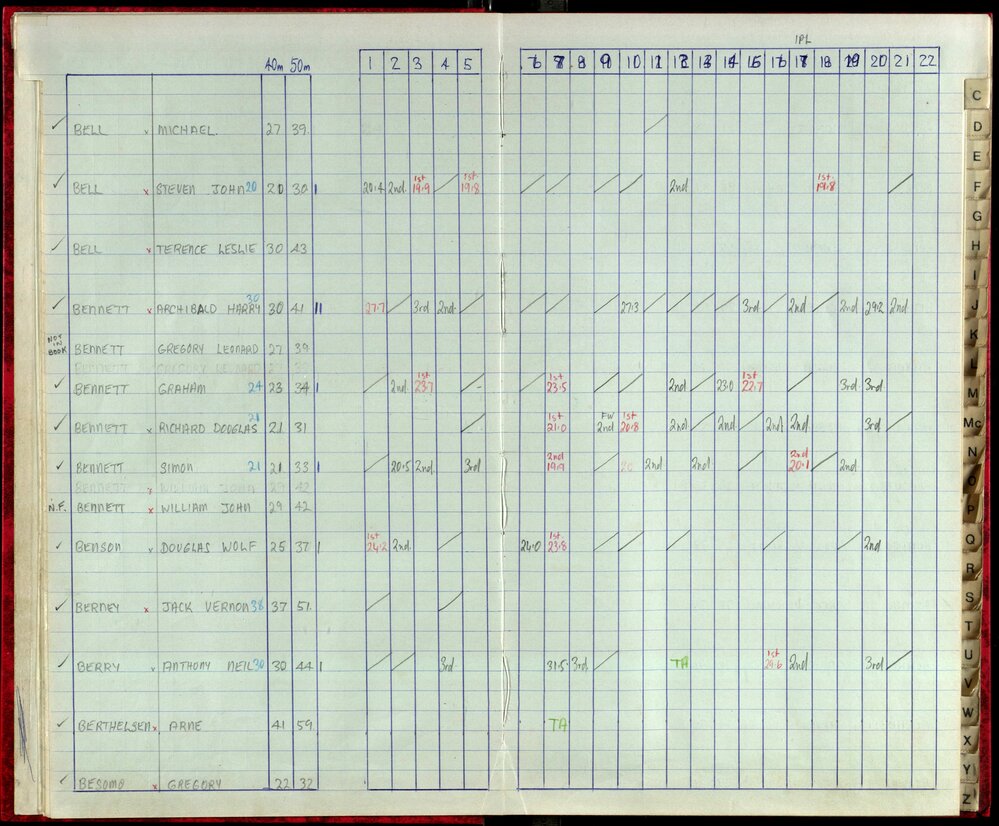 IPL
40m 50m 1 2 3 4 5 6 7 8 9 10 11 12 13 14 15 16 17 18 19 20 21 22
✓ BELL x MICHAEL 27 39 /
✓ BELL x STEVEN JOHN 20 20 30 1 20.4 2nd. 1st 19.9 / 1st 19.8 / / / / 2nd 1st 19.8 /
✓ BELL x TERENCE LESLIE 30 43
✓ BENNETT x ARCHIBALD HARRY 30 30 41 11 27.7 / 3rd 2nd / / / / 27.3 / / / / 3rd / 2nd / 2nd 29.2 2nd
NOT IN BOOK BENNETT GREGORY LEONARD 27 39
BENNETT GREGORY LEONARD 27 39
✓ BENNETT GRAHAM 24 23 34 1 / 2nd 1st 23.7 / / 1st 23.5 / / 2nd / 23.0 1st 22.7 / 3rd 3rd
✓ BENNETT x RICHARD DOUGLAS 21 21 31 / 1st 21.0 FW 2nd 1st 20.8 / 2nd / 2nd / 2nd 2nd 3rd /
✓ BENNETT SIMON 21 21 33 1 / 20.5 2nd. 3rd 2nd 19.9 / 20 2nd 2nd / 2nd 20.1 / 2nd
BENNETT x WILLIAM JOHN 29 42
N.F. BENNETT x WILLIAM JOHN 29 42
✓ BENSON x DOUGLAS WOLF 25 37 1 1st 24.2 2nd. / 24.0 1st 23.8 / / / / / 2nd
✓ BERNEY x JACK VERNON 38 37 51 / /
✓ BERRY x ANTHONY NEIL 30 30 44 1 / / 3rd 31.5 3rd / TA 1st 29.6 2nd 3rd /
✓ BERTHELSEN x ARNE 41 59 TA
✓ BESOMO x GREGORY 22 32
C
D
E
F
G
H
I
J
K
L
M
Mc
N
O
P
Q
R
S
T
U
V
W
X
Y
Z